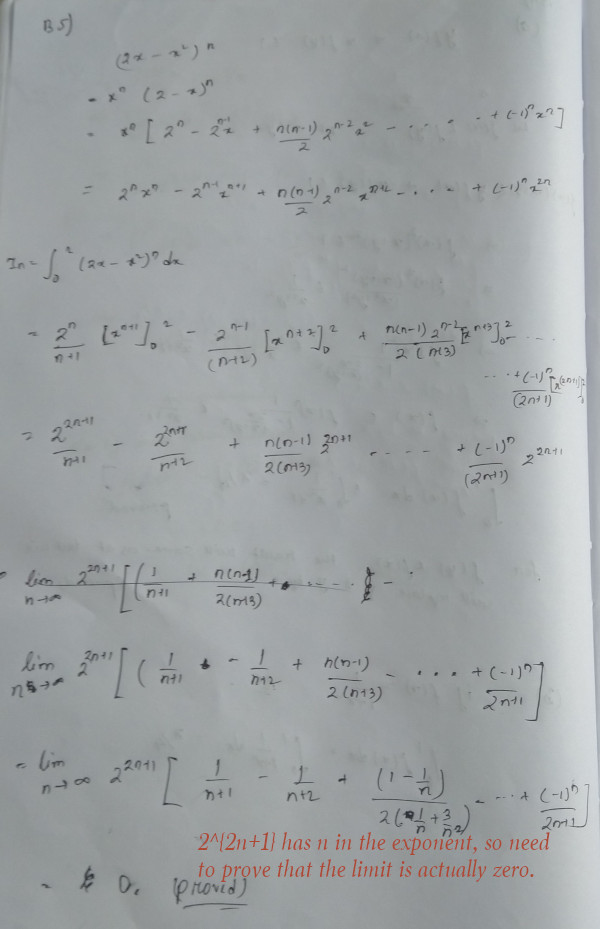 B5)
(2x - x²)ⁿ
= xⁿ (2 - x)ⁿ
= xⁿ [ 2ⁿ - 2ⁿ⁻¹x + n(n-1)/2 2ⁿ⁻² x² - ..... + (-1)ⁿ xⁿ ]
= 2ⁿxⁿ - 2ⁿ⁻¹xⁿ⁺¹ + n(n-1)/2 2ⁿ⁻² xⁿ⁺² - ... + (-1)ⁿ x²ⁿ
In = ∫₀² (2x - x²)ⁿ dx
= 2ⁿ/(n+1) [xⁿ⁺¹]₀² - 2ⁿ⁻¹/(n+2) [xⁿ⁺²]₀² + n(n-1) 2ⁿ⁻²/2(n+3) [xⁿ⁺³]₀² - ...
... + (-1)ⁿ/(2n+1) [x⁽²ⁿ⁺¹⁾]₀²
= 2²ⁿ⁺¹/(n+1) - 2²ⁿ⁺¹/(n+2) + n(n-1)/2(n+3) 2²ⁿ⁺¹ - .... + (-1)ⁿ/(2n+1) 2²ⁿ⁺¹
lim n→∞ 2²ⁿ⁺¹ [ ( 1/(n+1) - 1/(n+2) + n(n-1)/2(n+3) - ... + (-1)ⁿ/2n+1 ]
= lim n→∞ 2²ⁿ⁺¹ [ 1/n+1 - 1/n+2 + (1 - 1/n)/2(1/n + 3/n²) - ... + (-1)ⁿ/2n+1 ]
2^{2n+1} has n in the exponent, so need
to prove that the limit is actually zero.
= 0. (provid)